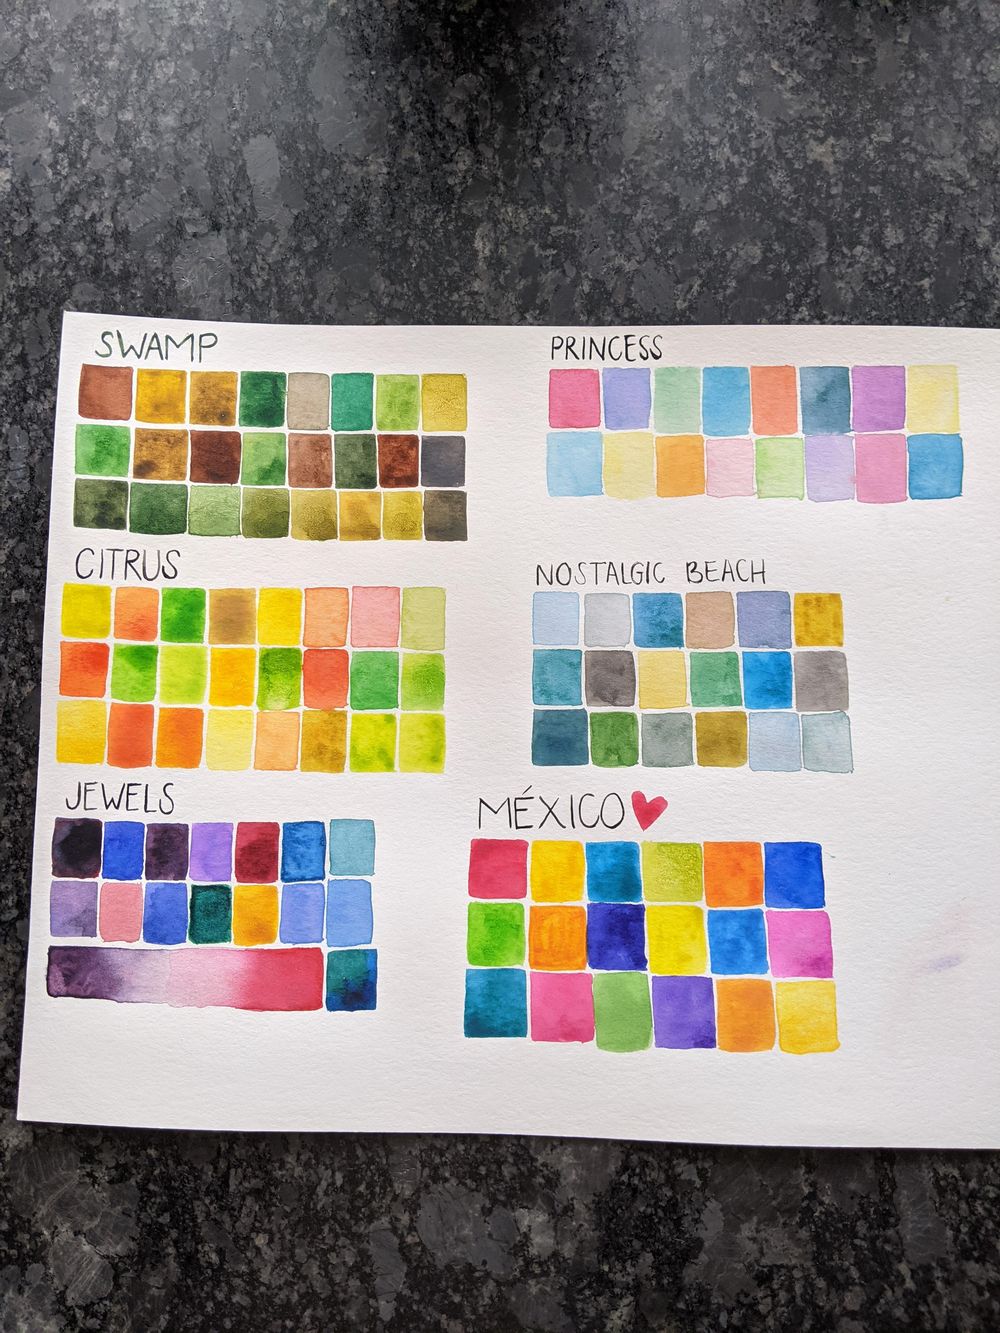 SWAMP
PRINCESS
CITRUS
NOSTALGIC BEACH
JEWELS
MÉXICO